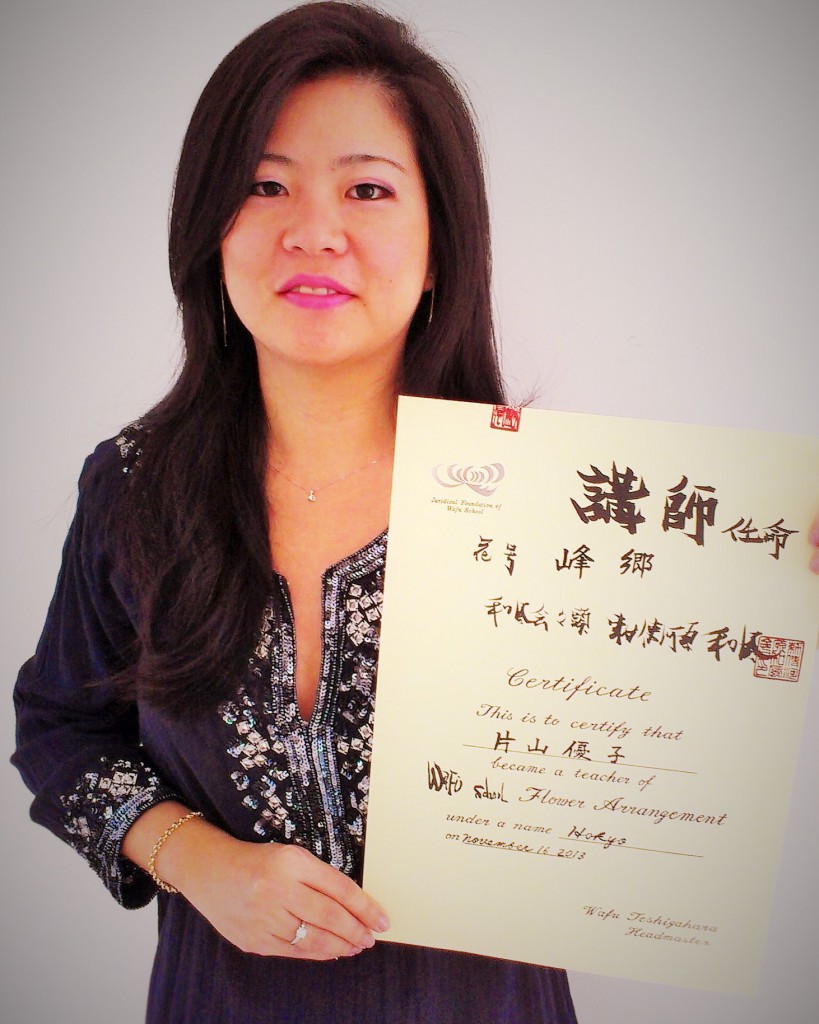 Juridical Foundation of
Wafu School
講師 任命
花号 峰郷
和風会々頭 勅使河原和風
Certificate
This is to certify that
片山優子
became a teacher of
Wafu School Flower Arrangement
under a name Hokyo
on November 16 2013
Wafu Teshigahara
Headmaster